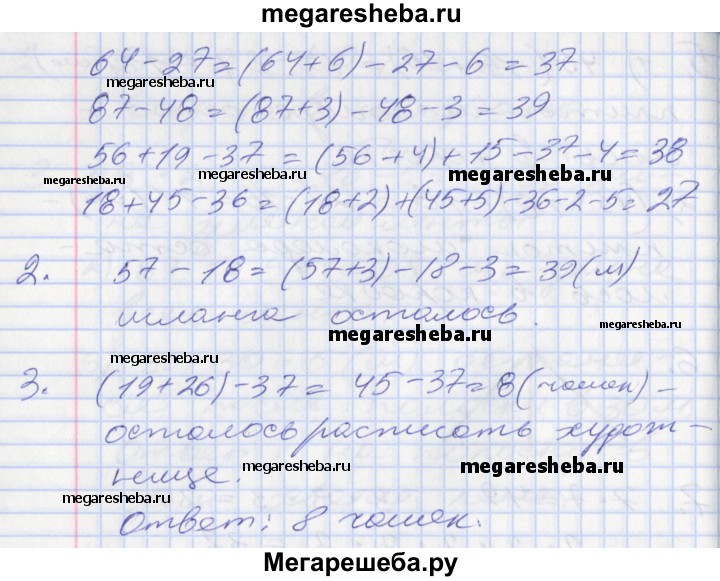 megaresheba.ru
64-27=(64+6)-27-6=37
megaresheba.ru
87-48=(87+3)-48-3=39
56+19-37=(56+4)+15-37-4=38
megaresheba.ru megaresheba.ru
18+45-36=(18+2)+(45+5)-36-2-5=27
2. 57-18=(57+3)-18-3=39(м)
шланга осталось.
megaresheba.ru megaresheba.ru
megaresheba.ru
3. (19+26)-37=45-37=8(чашек)-
осталось расписать худож-
нице.
megaresheba.ru megaresheba.ru
megaresheba.ru
Ответ: 8 чашек.
Мегарешеба.ру